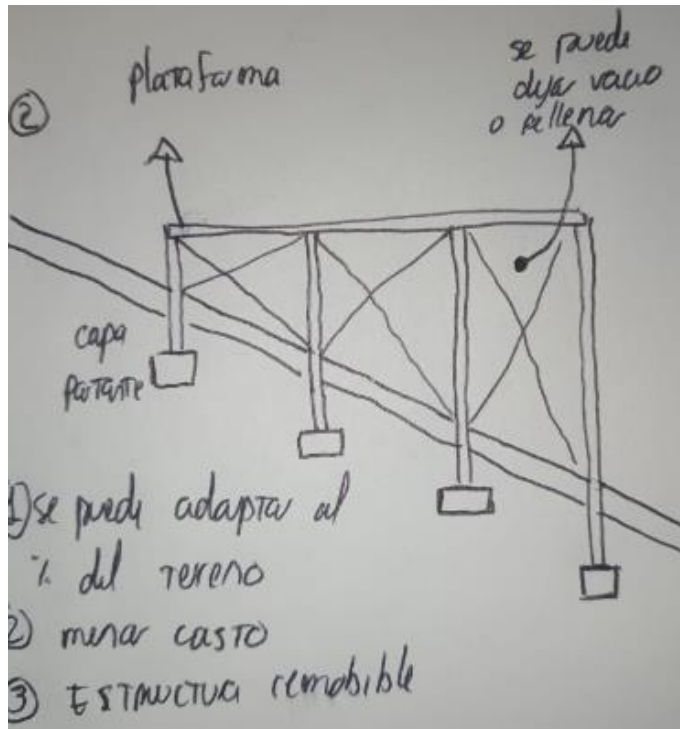 ②
plataforma
se puede
dejar vacio
o rellenar
capa
portante
1) se puede adaptar al
% del terreno
② menor costo
③ ESTRUCTURA remobible